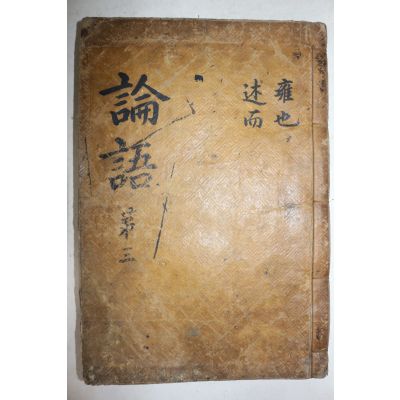 雍也
述而
論語
第三